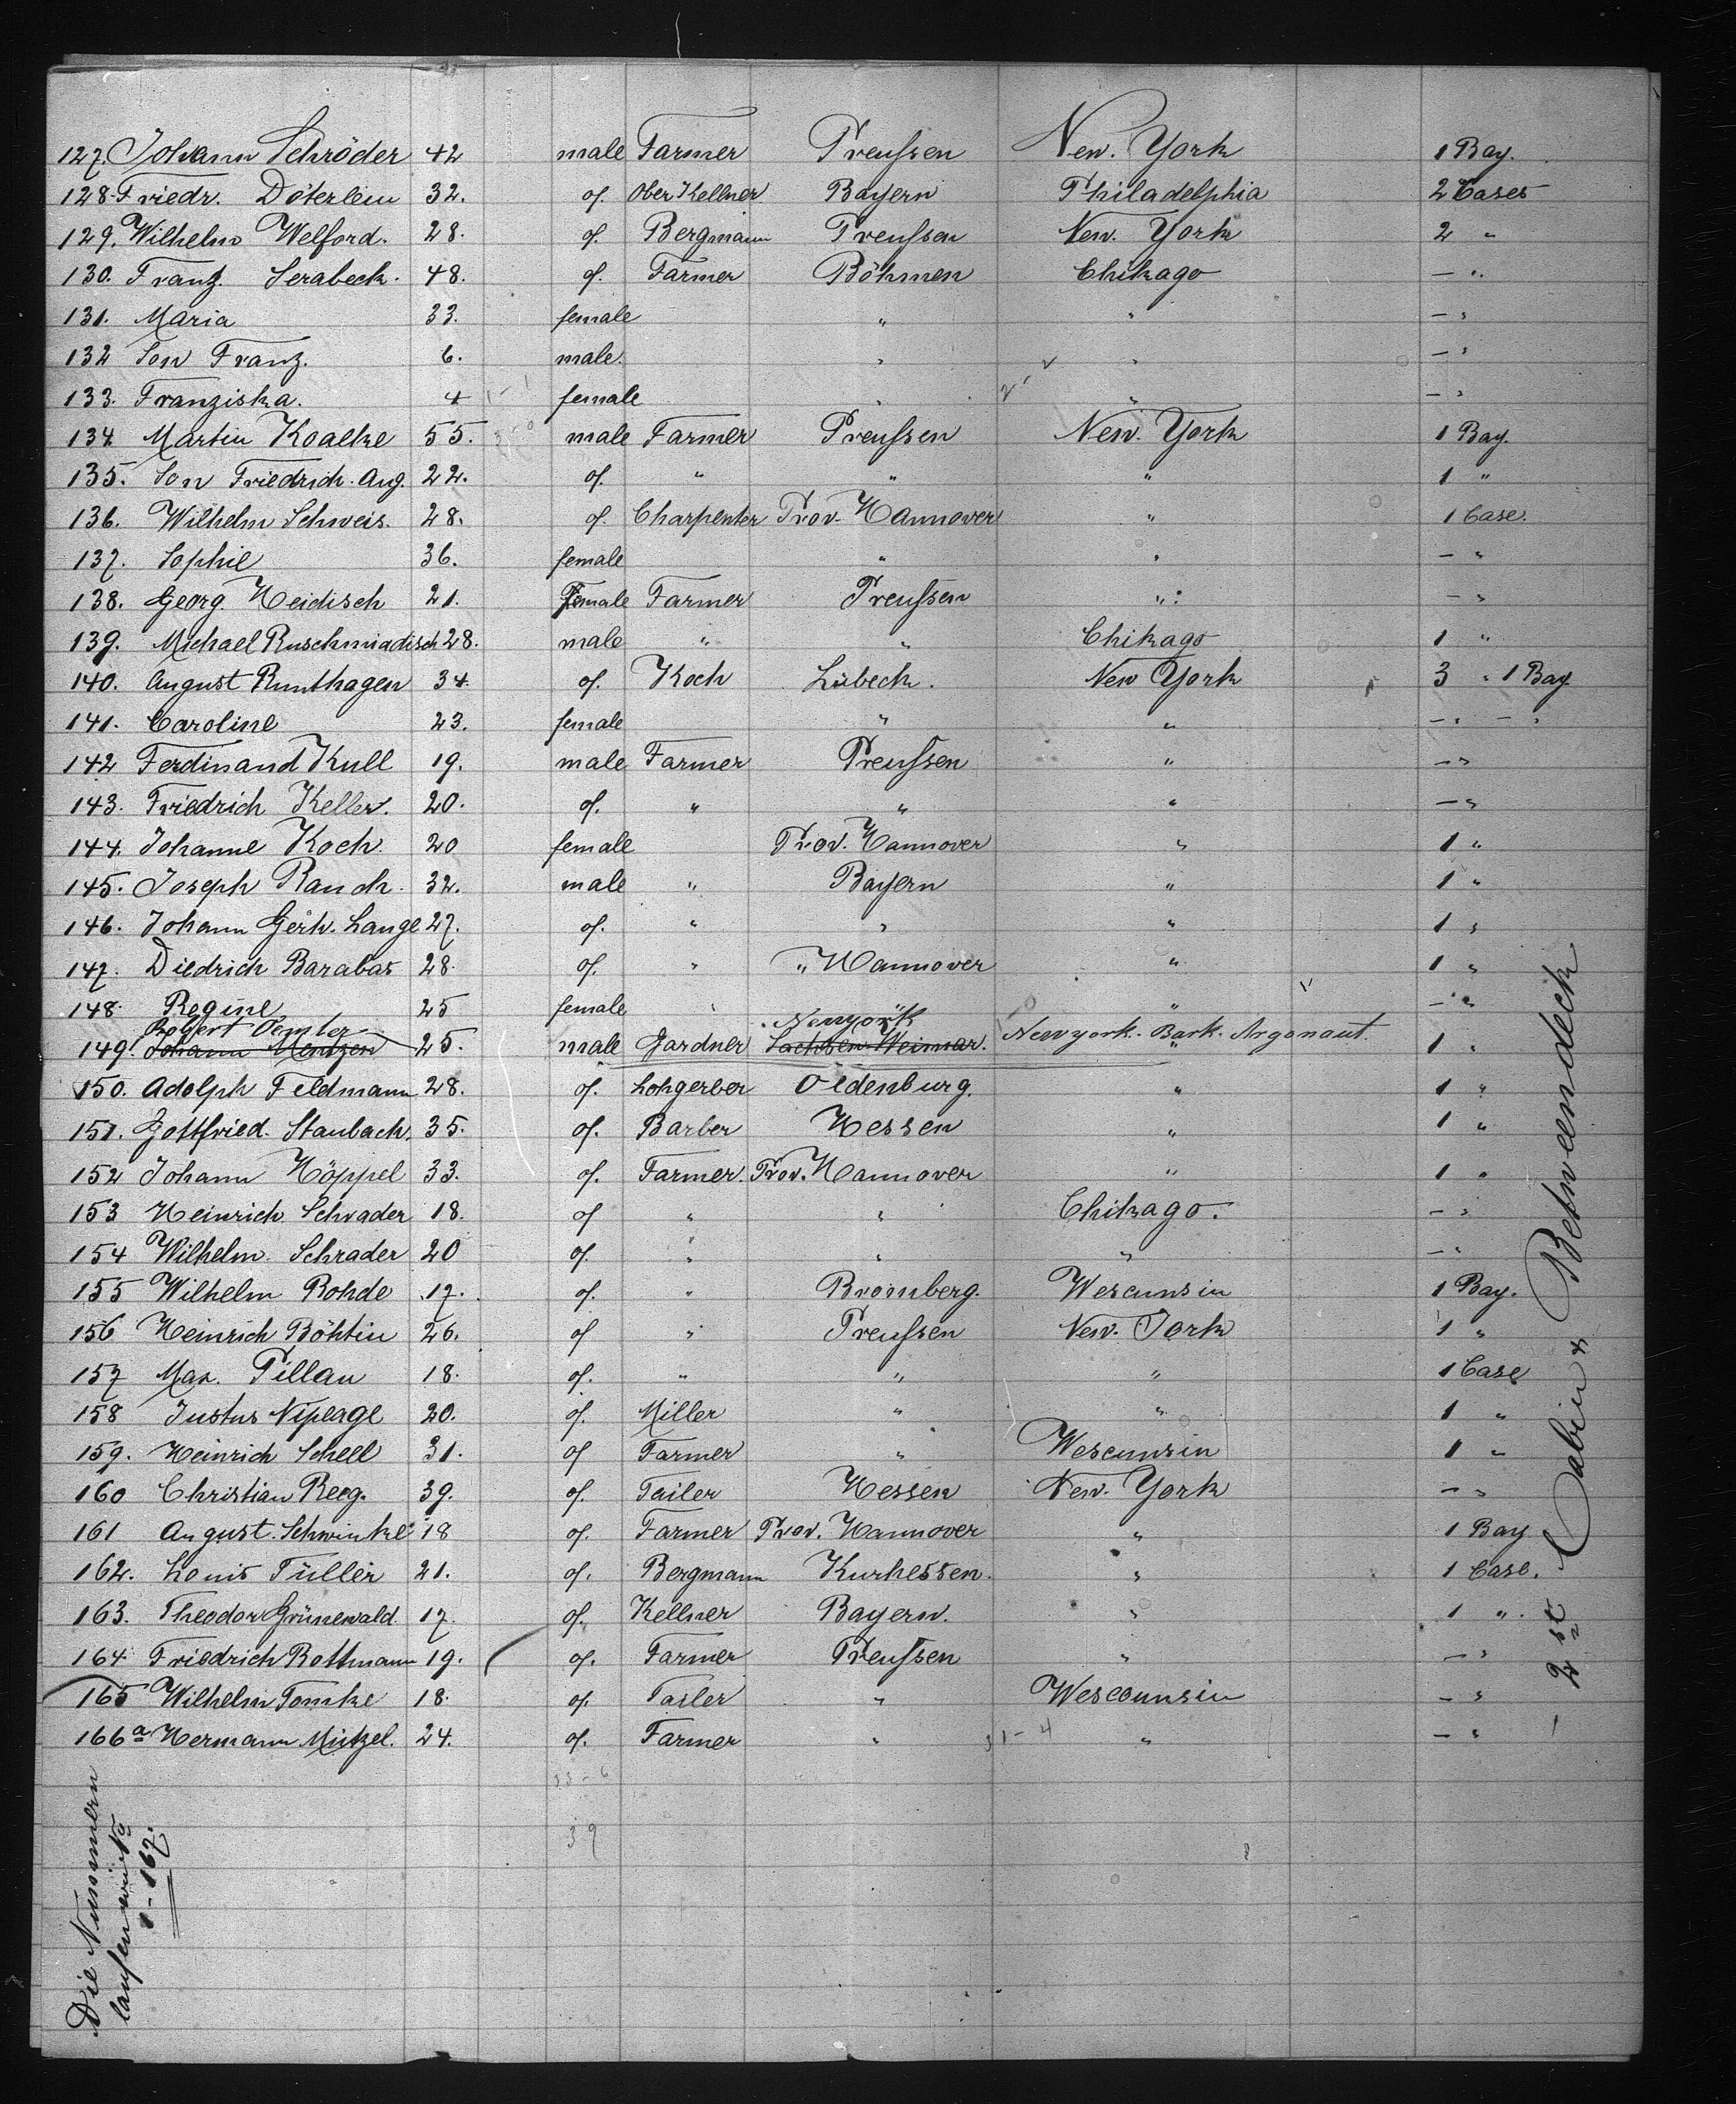 127. Johann Schröder 42 male Farmer Preußen New. York 1 Bay.
128. Friedr. Döterlein 32. of. Ober Kellner Bayern Philadelphia 2 Cases
129. Wilhelm Welford. 28. of. Bergmann Preußen New. York 2 "
130. Franz. Serabeck. 48. of. Farmer Böhmen Chikago — "
131. Maria 33. female " " — "
132 Son Franz. 6. male. " " — "
133. Franziska. 4 female " " — "
134 Martin Koaeke 55. male Farmer Preußen New. York 1 Bay.
135. Son Friedrich. Aug. 22. of. " " " 1 "
136. Wilhelm Schweis. 28. of. Charpenter Prov. Hannover " 1 Case.
137. Sophie 36. female " " — "
138. Georg Heidisch 21. Female Farmer Preußen " — "
139. Michael Ruschmiadisch 28. male " " Chikago 1 "
140. August Runthagen 34. of. Koch Lübeck. New York 3 " 1 Bay
141. Caroline 23. female " " — " — "
142 Ferdinand Kull 19. male Farmer Preußen " — "
143. Friedrich Keller. 20. of. " " " — "
144. Johanne Koch. 20 female Prov. Hannover " 1 "
145. Joseph Rauch. 32. male " Bayern " 1 "
146. Johann Gerh. Lange 27. of. " " " 1 "
147. Diedrich Barabas 28. of. " " Hannover " 1 "
148. Regine 25 female " " — "
Robert Oemler Newyork
149. Johann Mentzen 25. male Gardner Sachsen Weimar. Newyork. Bark. Argonaut. " 1 "
150. Adolph Feldmann 28. of. Lohgerber Oldenburg. " 1 "
151. Gottfried. Staubach. 35. of. Barber Hessen " 1 "
152 Johann Höppel 33. of. Farmer. Prov. Hannover " 1 "
153 Heinrich Schrader 18. of " " Chikago. — "
154 Wilhelm. Schrader 20 of. " " " — "
155 Wilhelm Rohde 17. of. " Bromberg. Wescunsin 1 Bay.
156 Heinrich Böhtin 26. of " Preußen New. York 1 "
157 Max. Pillau 18. of. " " " 1 Case
158 Justus Nipeage 20. of. Miller " " 1 "
159. Heinrich Schell 31. of Farmer " Wescunsin 1 "
160 Christian Reeg. 39. of. Tailer Hessen New. York — "
161 August. Schwinke 18 of. Farmer Prov. Hannover " 1 Bay
162. Louis Tüller 21. of. Bergmann Kurhessen. " 1 Case.
163. Theodor Grünewald. 17. of. Kellner Bayern. " 1 ".
164 Friedrich Rottmann 19. of. Farmer Preußen " — "
165 Wilhelm Tomke 18. of. Tailer " Wescounsin — "
166a Hermann Mützel. 24. of. Farmer " " — "
31-4
33-6
39
Die Nummern
laufen wie No
1-167.
2st Cabin & Betweendeck